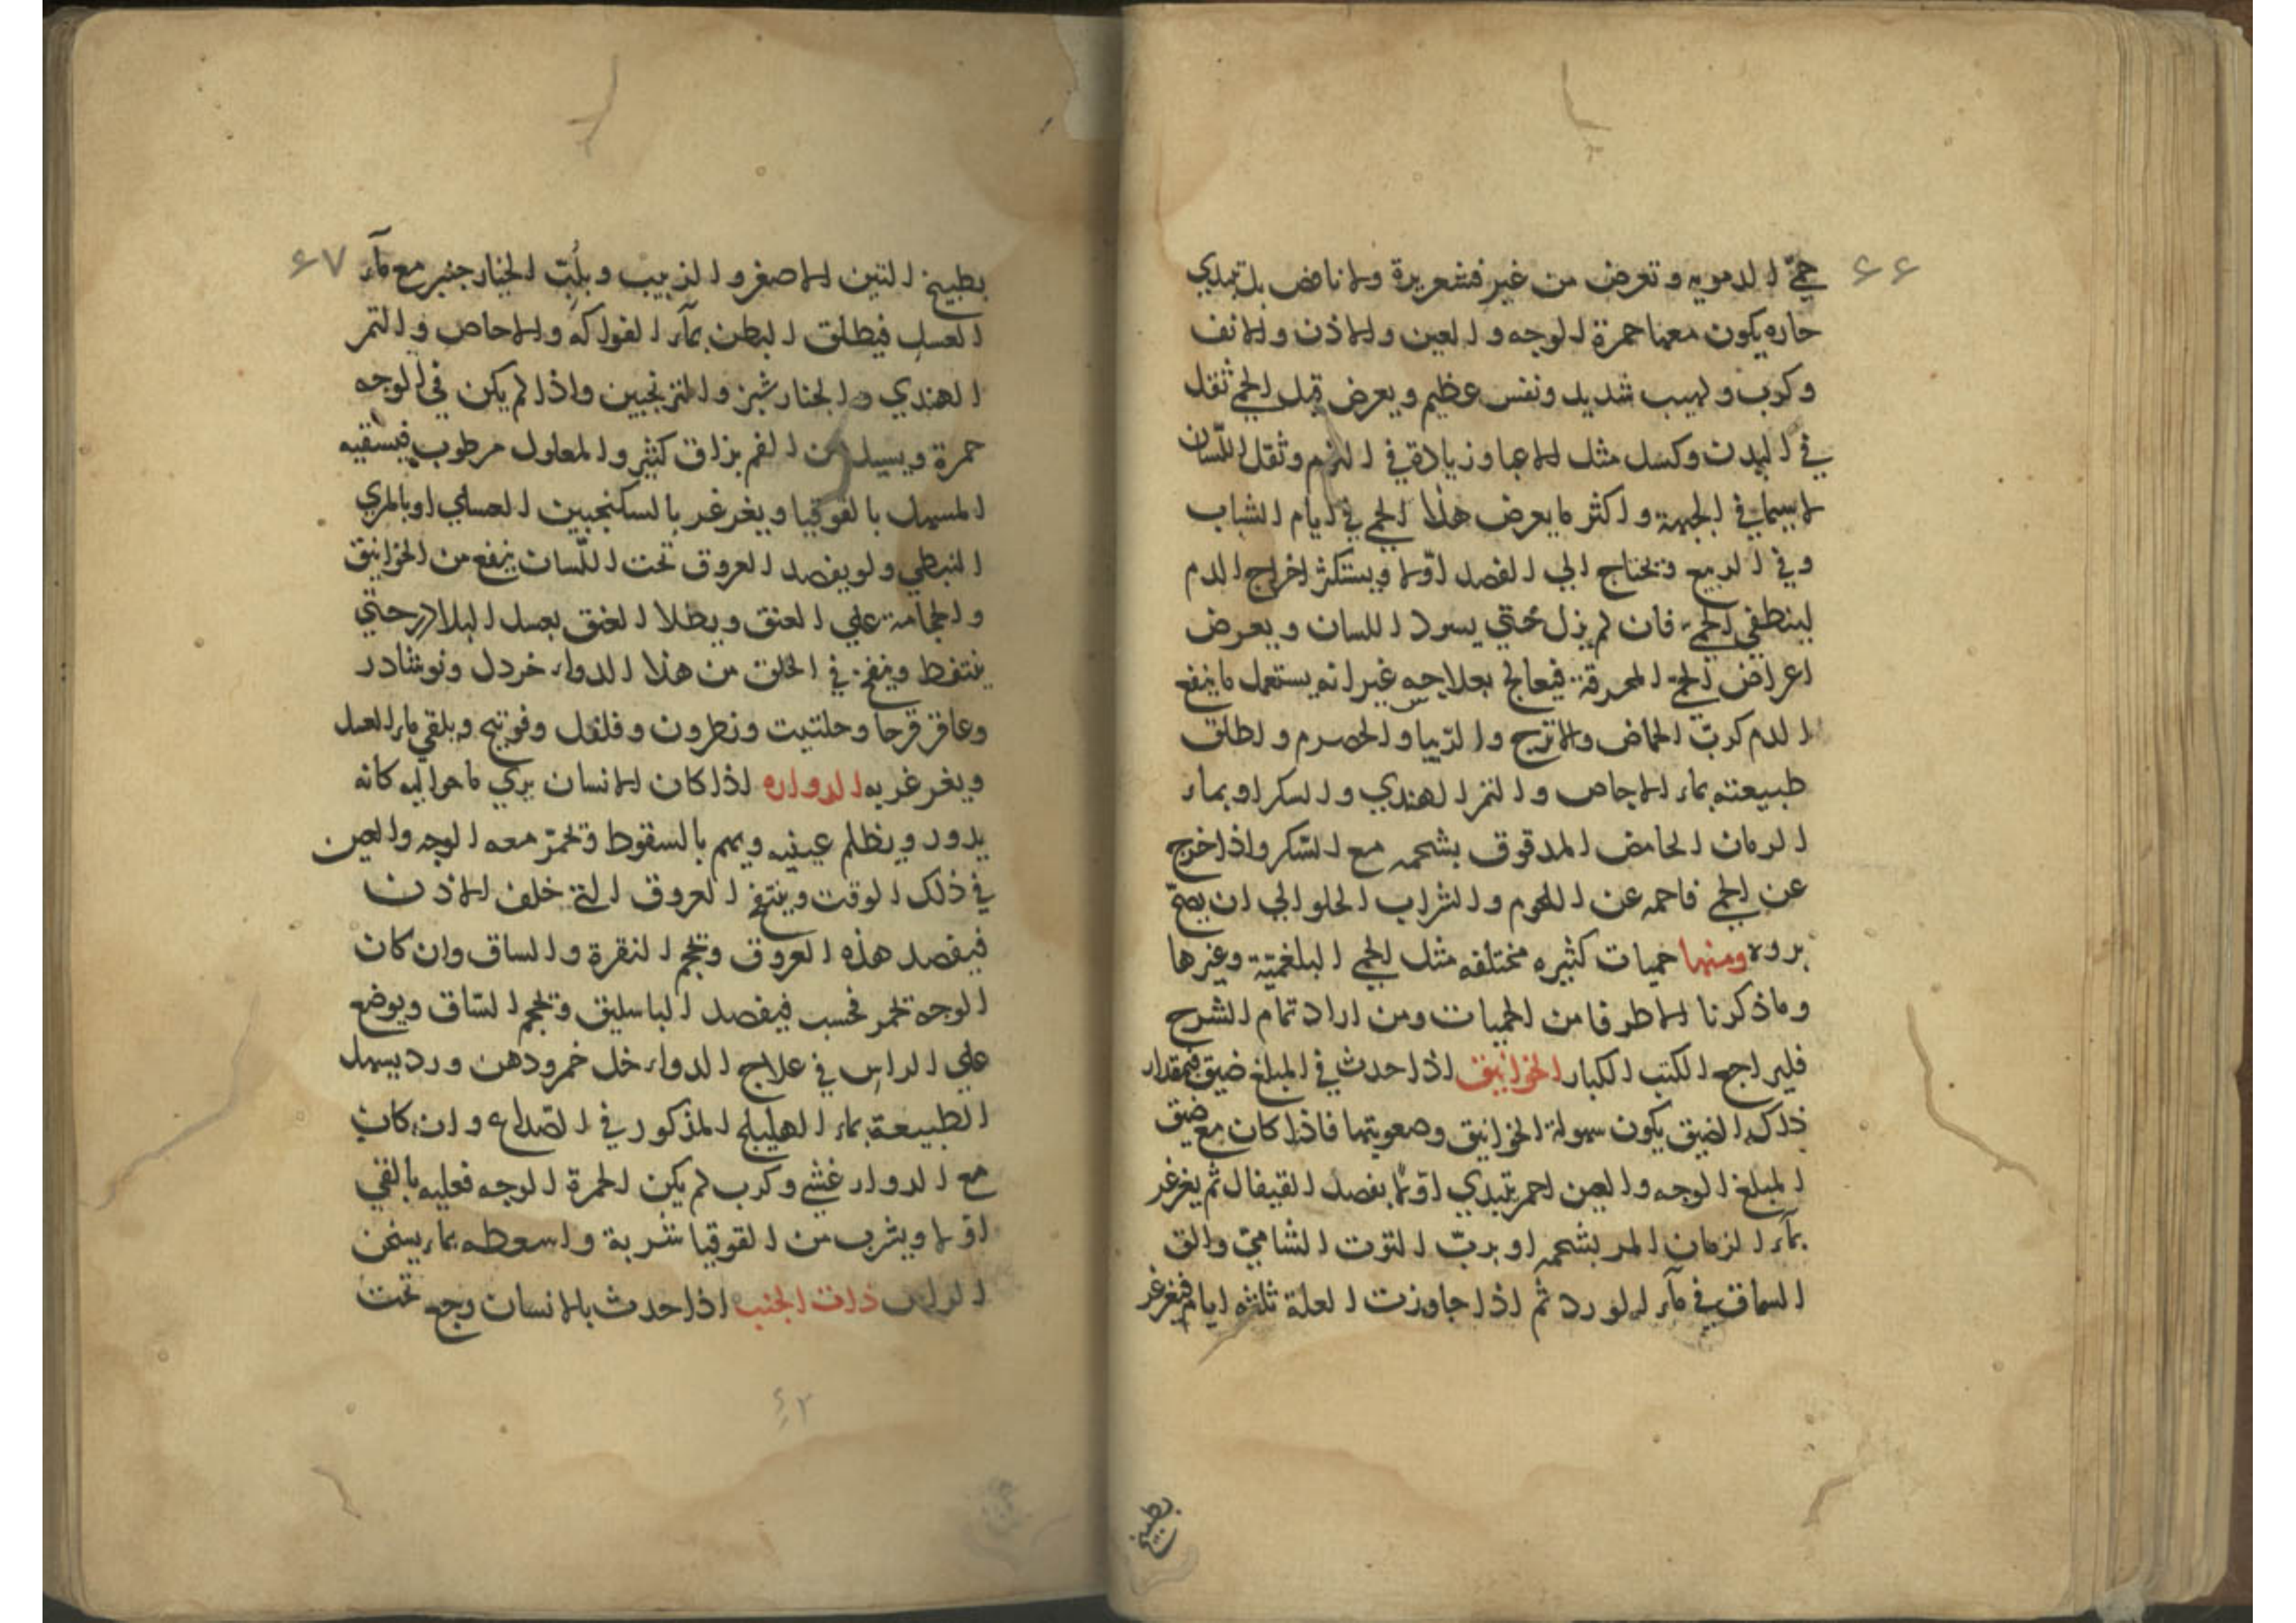 ۶۶
حمي الدمويه وتعرض من غير قشعريرة ولا نافض بل تبتدي
حاره يكون معها حمرة الوجه والعين والاذن والانف
وكرب ولهيب شديد ونفس عظيم ويعرض قبل الحمي ثقل
في البدن وكسل مثل الاعيا وزيادة في النوم وثقل اللسان
لا سيما في الجبهة واكثر ما يعرض هذا الحمي في ايام الشباب
وفي الربيع وتحتاج الي الفصد اولا ويستكثر اخراج الدم
لينطفي الحمي فان لم يزل حتي يسود اللسان ويعرض
اعراض الحمي المحرقة فيعالج بعلاجه غير انه يستعمل ما ينفع
الدم كربّ الحماض والاترج والريبا والحصرم واطلق
طبيعته بماء الاجاص والتمر الهندي والسكر او بماء
الرمان الحامض المدقوق بشحمه مع السّكر واذا خرج
عن الحمي فاحمه عن اللحوم والشراب الحلو الي ان يصحّ
بروه ومنها حميات كثيره مختلفه مثل الحمي البلغميّة وغيرها
وما ذكرنا الا طرفا من الحميات ومن اراد تمام الشرح
فليراجع الكتب الكبار الخوانيق اذا حدث في المبلغ ضيق فبمقدار
ذلك الضيق يكون سهولة الخوانيق وصعوبتها فاذا كان مع ضيق
المبلغ الوجه والعين احمر تبتدي اولا بفصد القيفال ثم يغرغر
بمآء الرمان المر بشحمه او بربّ التوت الشاميّ والق
السماق في مآء الورد ثم اذا جاوزت العلة ثلثه ايام فيغرغر
بطبيخ
۶۷
بطبيخ التين الاصفر والزبيب وبلُبّ الخيار جنبر مع مآء
العسل فيطلق البطن بمآء الفواكه والاجاص والتمر
الهندي والخيار شبنر والترنجبين واذا لم يكن في الوجه
حمرة ويسيل من الفم بزاق كثير والمعلول مرطوب فيسقيه
المسهل بالقوقيا ويغرغر بالسكنجبين العسلي او بالمري
النبطي ولو يفصد العروق تحت اللّسان ينفع من الخوانيق
والحجامة علي العنق ويطلا العنق بعسل البلادر حتي
يتنفط وينفخ في الحلق من هذا الدواء خردل ونوشادر
وعاقر قرحا وحلتيت ونطرون وفلفل وفوتنج ويلقي ماء العسل
ويغرغر به الدواره اذا كان الانسان يري ما حواليه كانه
يدور ويظلم عينيه ويهم بالسقوط وتحمرّ معه الوجه والعين
في ذلك الوقت وينتفخ العروق التي خلف الاذن
فيفصد هذه العروق وتحجم النقرة والساق وان كان
الوجه تحمر فحسب فيفصد الباسليق وتحجم السّاق ويوضع
علي الراس في علاج الدواء خل خمر ودهن ورد يسهل
الطبيعة بماء الهليلج المذكور في الصداع وان كان
مع الدوار غشي وكرب لم يكن الحمرة الوجه فعليه بالقي
اولا ويشرب من القوقيا شربة واسعطه بماء يسخن
الراس ذات الجنب اذا حدث بالانسان وجع تحت